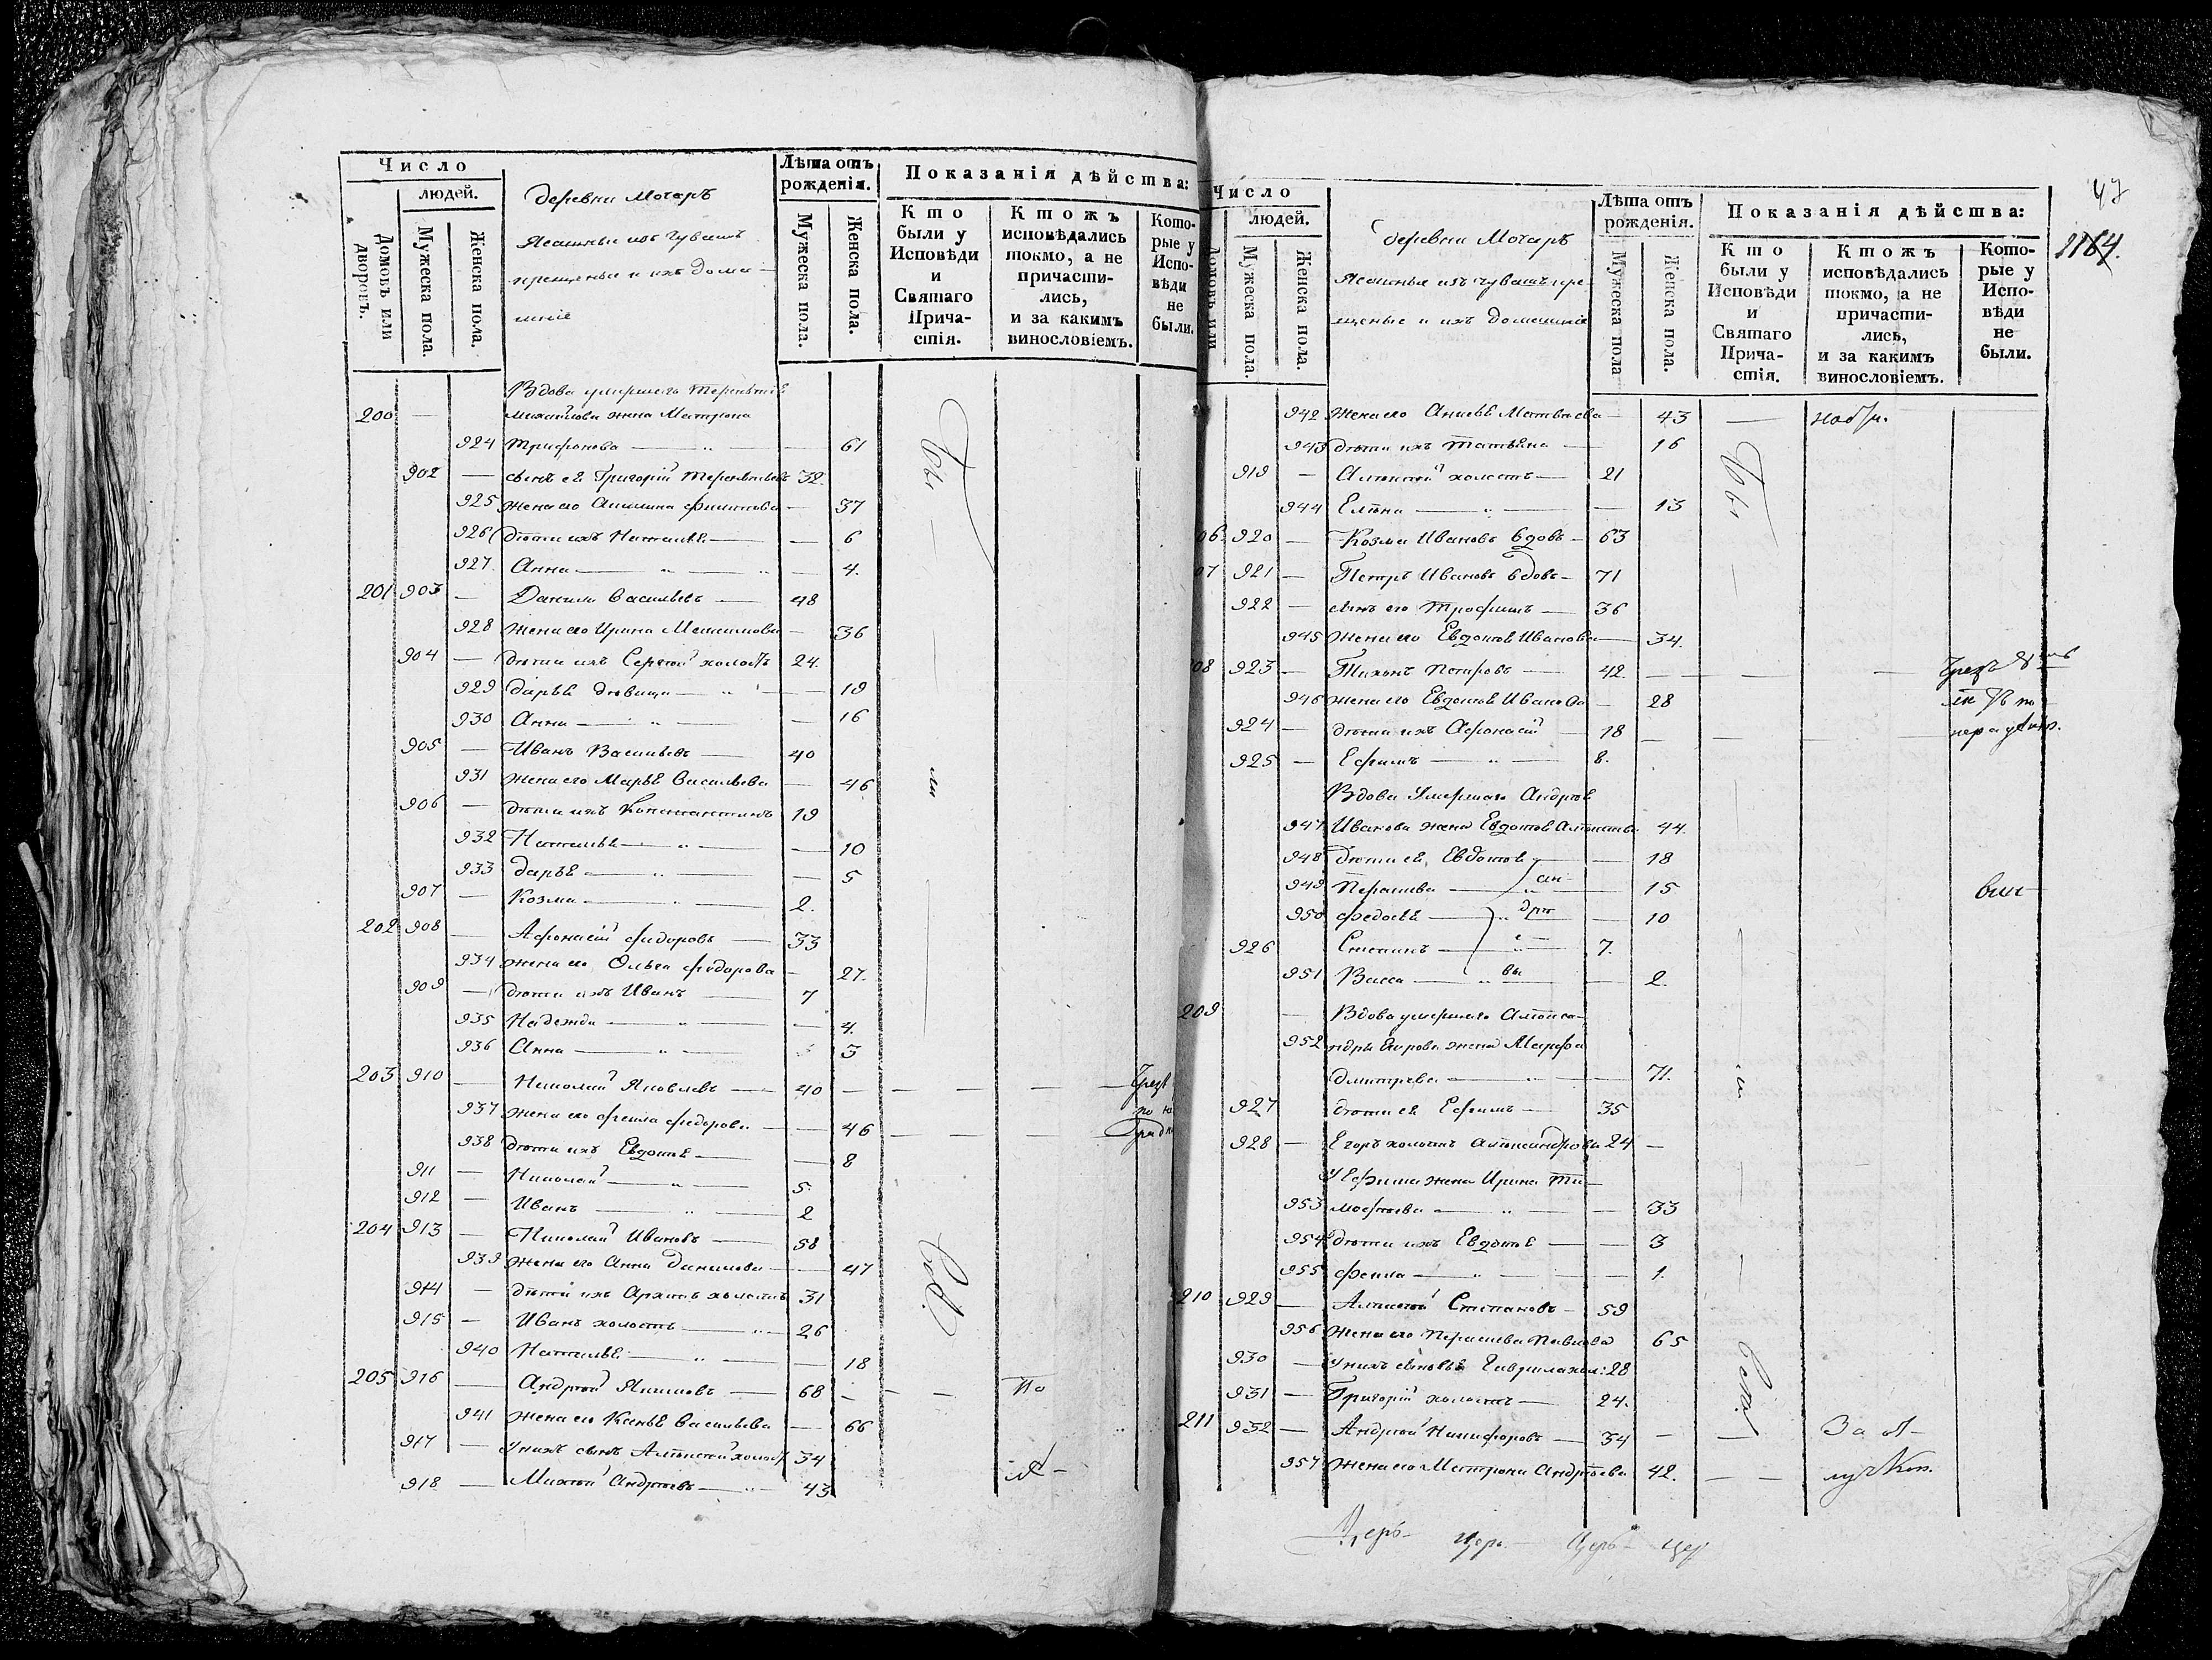 Число
людей.
Домовъ или дворовъ.
Мужеска пола.
Женска пола.
деревни Мочаръ
Ясашные изъ чувашъ
крещеные и ихъ дома-
шніе
Лѣта отъ рожденія.
Мужеска пола.
Женска пола.
Показанія дѣйства:
Кто были у Исповѣди и Святаго Причастія.
Ктожъ исповѣдались токмо, а не причастились, и за какимъ винословіемъ.
Которые у Исповѣди не были.
Вдова умершаго Терентіѣ
200 — михайлова жена Матрона
924 Трифонова — 61
902 — сынъ еѣ Григорій Терентьевъ 32.
925 жена его Акилина Филипова — 37
926 дѣти ихъ Наталья — 6
927. Анна — 4.
201 903 — Данила Васильевъ — 48
928 жена его Ирина Максимова — 36
904 — дѣти ихъ Сергѣй холостъ 24.
929 дарьѣ дѣвица — 19
930 Анна — 16
905 — Иванъ Васильевъ — 40
931 жена его Марьѣ Васильева — 46
906 — дѣти ихъ Константинъ 19
932 Натальѣ — 10
933 дарьѣ — 5
907 — Козма — 2.
202 908 — Афонасій Федоровъ — 33
934 жена его Ольга Федорова — 27.
909 — дѣти ихъ Иванъ — 7
935 Надежда — 4.
936 Анна — 3
203 910 — Николай Яковлевъ — 40 —
937 жена его Фекла Федорова — 46
938 дѣти ихъ Евдотьѣ — 8
911 — Николай — 5.
912 — Иванъ — 2
204 913 — Николай Ивановъ — 58
939 жена его Анна Данилова — 47
914 — дѣти ихъ Архипъ холостъ 31
915 — Иванъ холостъ — 26
940 Натальѣ — 18
205 916 — Андрей Якимовъ — 68 — по
941 жена его Васильева — 66
917 — у нихъ сынъ Алексей холост 34
918 — Михѣй Андреевъ — 43
бы
ли
47
1164.
Число
людей.
Домовъ или
Мужеска пола.
Женска пола.
деревни Мочаръ
Ясашные изъ чувашъ кре
щеные и ихъ домашніе
Лѣта отъ рожденія.
Мужеска пола
Женска пола.
Показанія дѣйства:
Кто были у Исповѣди и Святаго Причастія.
Ктожъ исповѣдались токмо, а не причастились, и за какимъ винословіемъ.
Которые у Исповѣди не были.
942 жена его Матвѣева — 43 —
943 дѣти ихъ Татьяна — 16
919 — Алексей холостъ — 21
944 Елена — 13
06. 920 — Козма Ивановъ вдовъ — 63
07 921 — Петръ Ивановъ вдовъ — 71
922 — сынъ его Трофимъ — 36
945 жена его Евдотьѣ Иванова — 34.
08 923 — Тихонъ Петровъ — 42.
946 жена его Евдотьѣ Иванова — 28
924 — дѣти ихъ Афонасій — 18
925 — Ефимъ — 8.
Вдова умершаго Андрѣѣ
947 Иванова жена Евдотьѣ 44.
948 дѣти еѣ, Евдотьѣ — 18
949 Парасковья — 15
950 Федосьѣ — 10
ан
дре
е
вы
926 Степанъ — 7.
951 Васса — 2.
209 — Вдова умершаго Алекса-
952 ндры Егорова жена Марфа
дмитрева — 71.
927 дѣти еѣ Ефимъ — 35
928 — Егоръ холостъ Александровы 24 —
У Ефима жена Ирина Ти-
953 мофѣева — 33
954 дѣти ихъ Евдотьѣ — 3
955 Фекла — 1.
210 929 — Алексей Степановъ — 59
956 жена его Парасковья Павлова 65
930 — у нихъ сыновья Гаврила хол: 28
931 — Григорій холостъ — 24.
211 932 — Андрей Никифоровъ — 34 — За от-
957 жена его Матрона Андрѣева 42. — лучкою.
бы
ли
Церъ- Церъ- Церъ- Цер